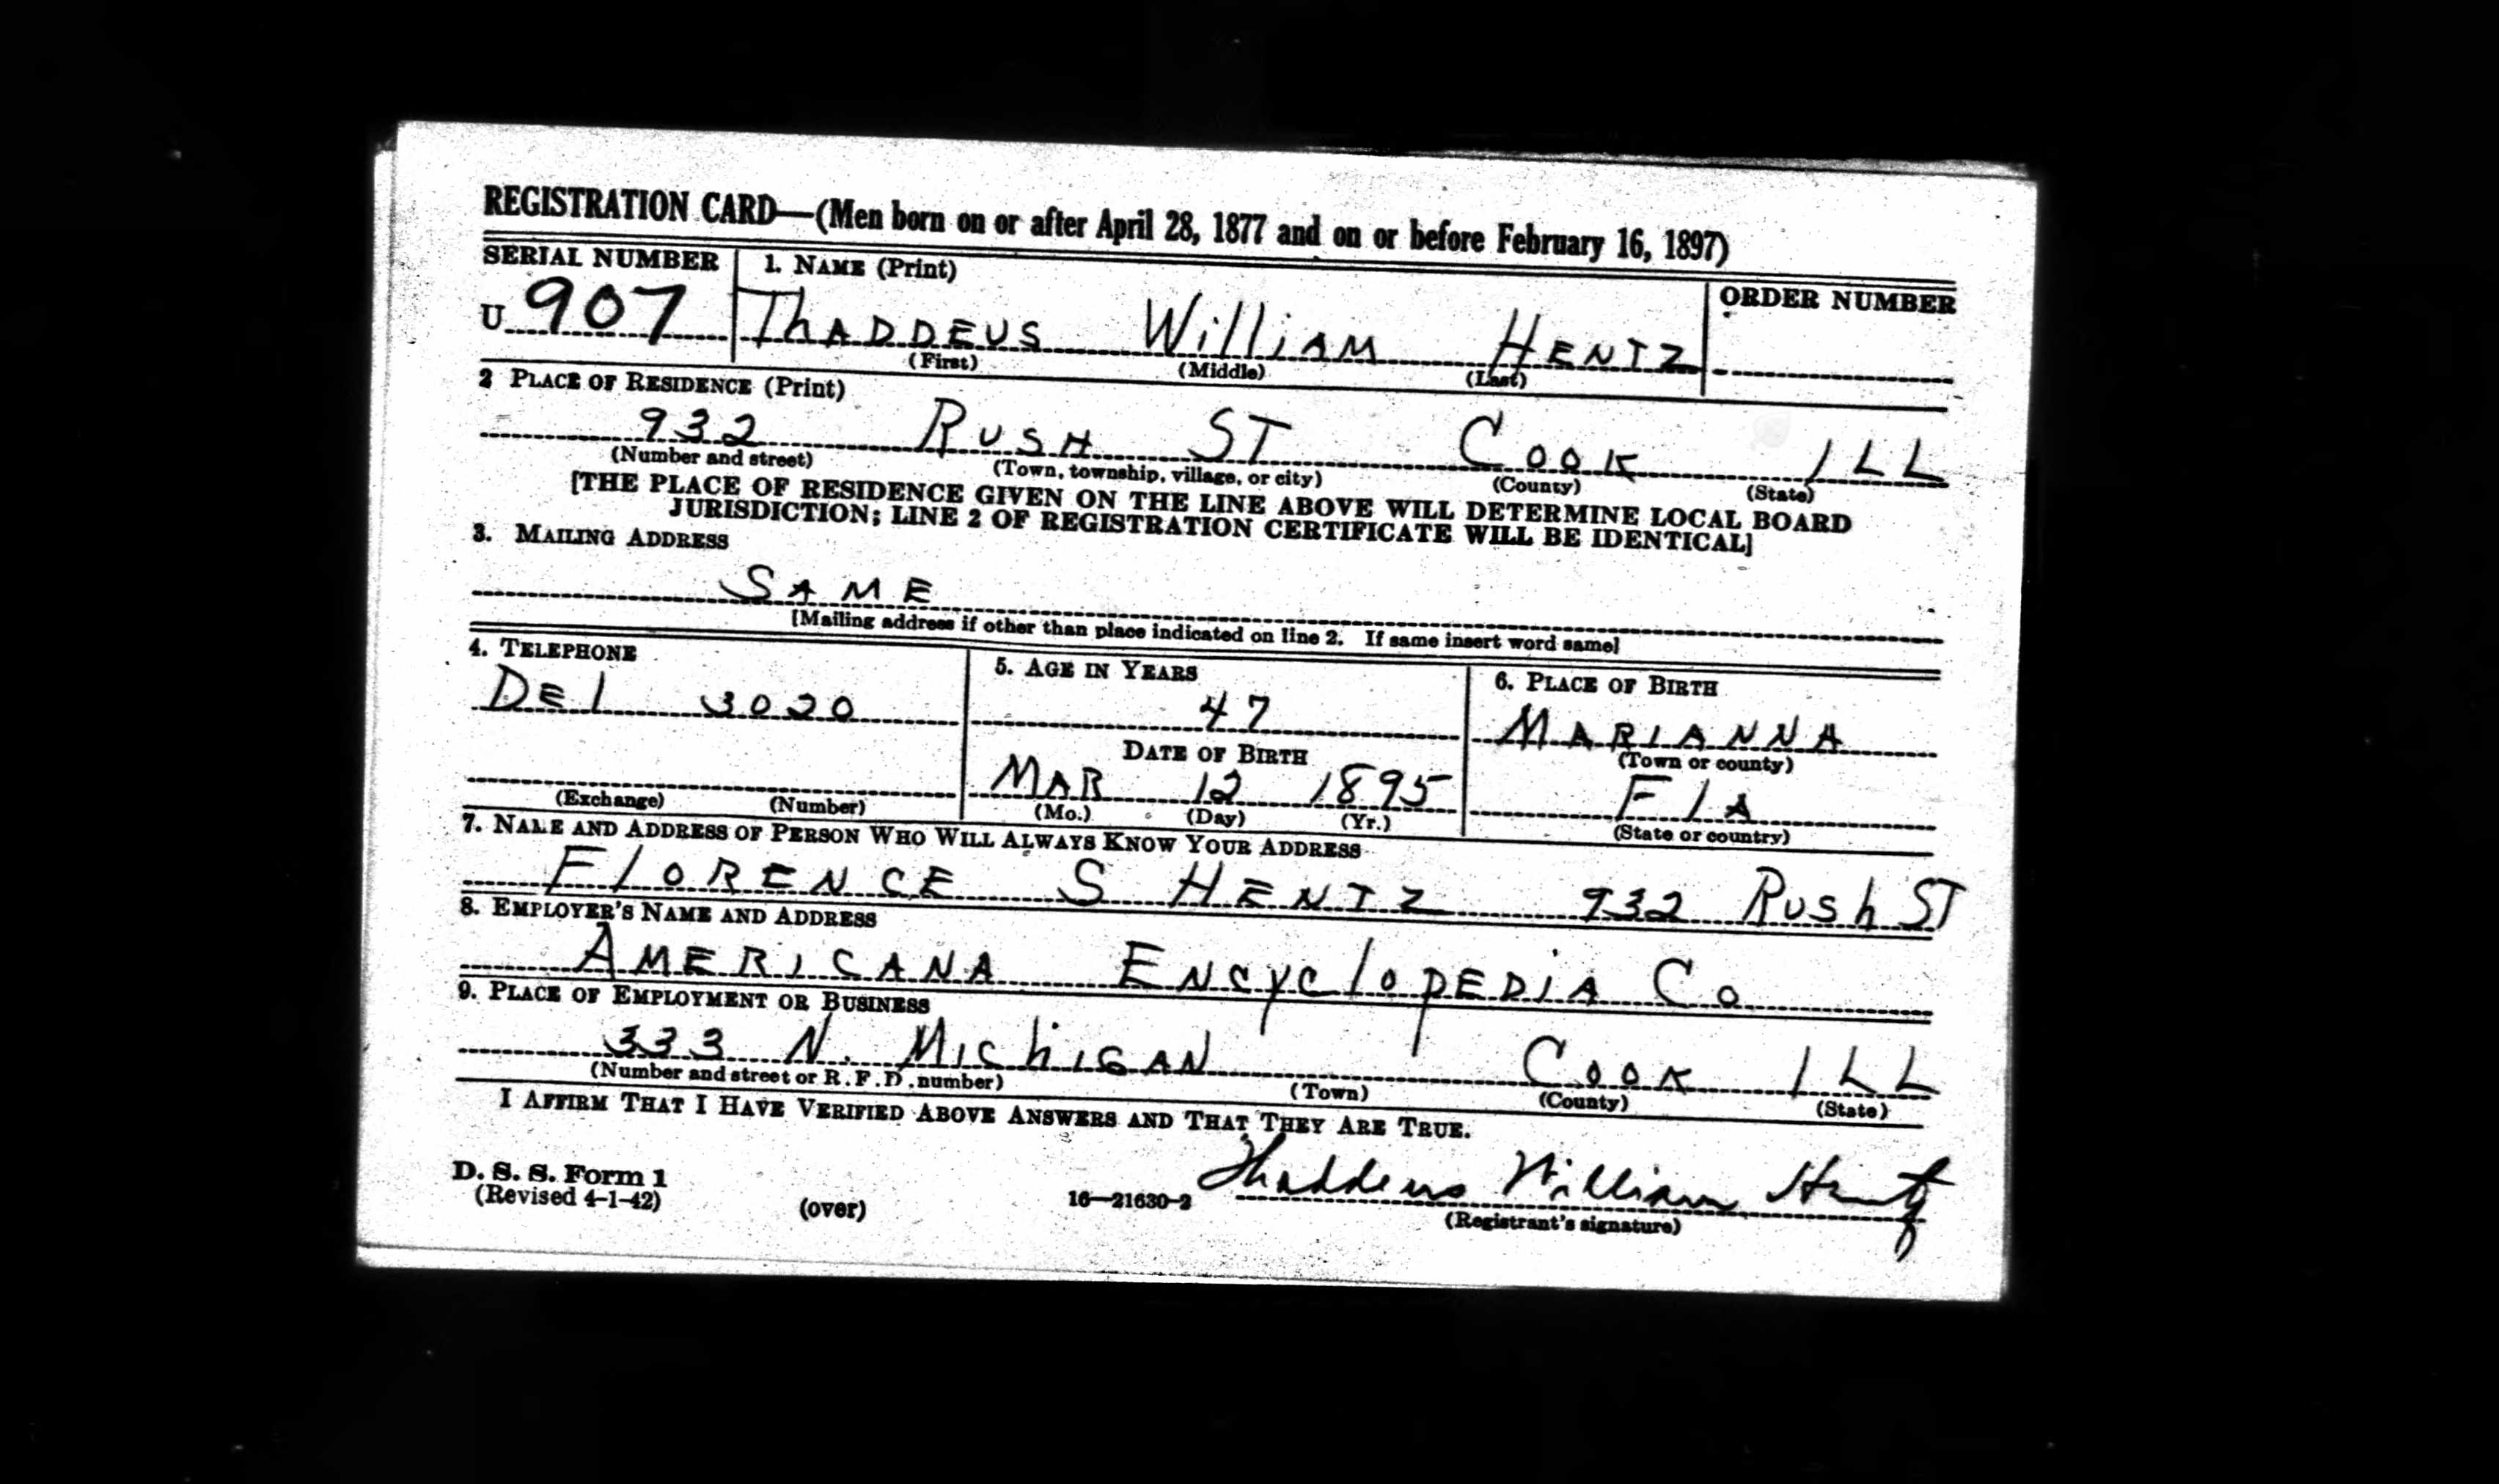 REGISTRATION CARD—(Men born on or after April 28, 1877 and on or before February 16, 1897)
SERIAL NUMBER 1. NAME (Print) ORDER NUMBER
U 907 ThADDEUS WilliAM HENTZ
(First) (Middle) (Last)
2 PLACE OF RESIDENCE (Print)
932 RUSH ST COOK ILL
(Number and street) (Town, township, village, or city) (County) (State)
[THE PLACE OF RESIDENCE GIVEN ON THE LINE ABOVE WILL DETERMINE LOCAL BOARD
JURISDICTION; LINE 2 OF REGISTRATION CERTIFICATE WILL BE IDENTICAL]
3. MAILING ADDRESS
SAME
[Mailing address if other than place indicated on line 2. If same insert word same]
4. TELEPHONE 5. AGE IN YEARS 6. PLACE OF BIRTH
DEl 3020 47 MARIANNA
(Town or county)
DATE OF BIRTH
MAR 12 1895 FlA
(Exchange) (Number) (Mo.) (Day) (Yr.) (State or country)
7. NAME AND ADDRESS OF PERSON WHO WILL ALWAYS KNOW YOUR ADDRESS
FlORENCE S HENTZ 932 RUSh ST
8. EMPLOYER'S NAME AND ADDRESS
AMERICANA ENCyclOpEDiA Co
9. PLACE OF EMPLOYMENT OR BUSINESS
333 N. MIChIGAN COOK ILL
(Number and street or R. F. D. number) (Town) (County) (State)
I AFFIRM THAT I HAVE VERIFIED ABOVE ANSWERS AND THAT THEY ARE TRUE.
D. S. S. Form 1
(Revised 4-1-42) (over) 16—21630-2 Thaddeus William Hentz
(Registrant's signature)